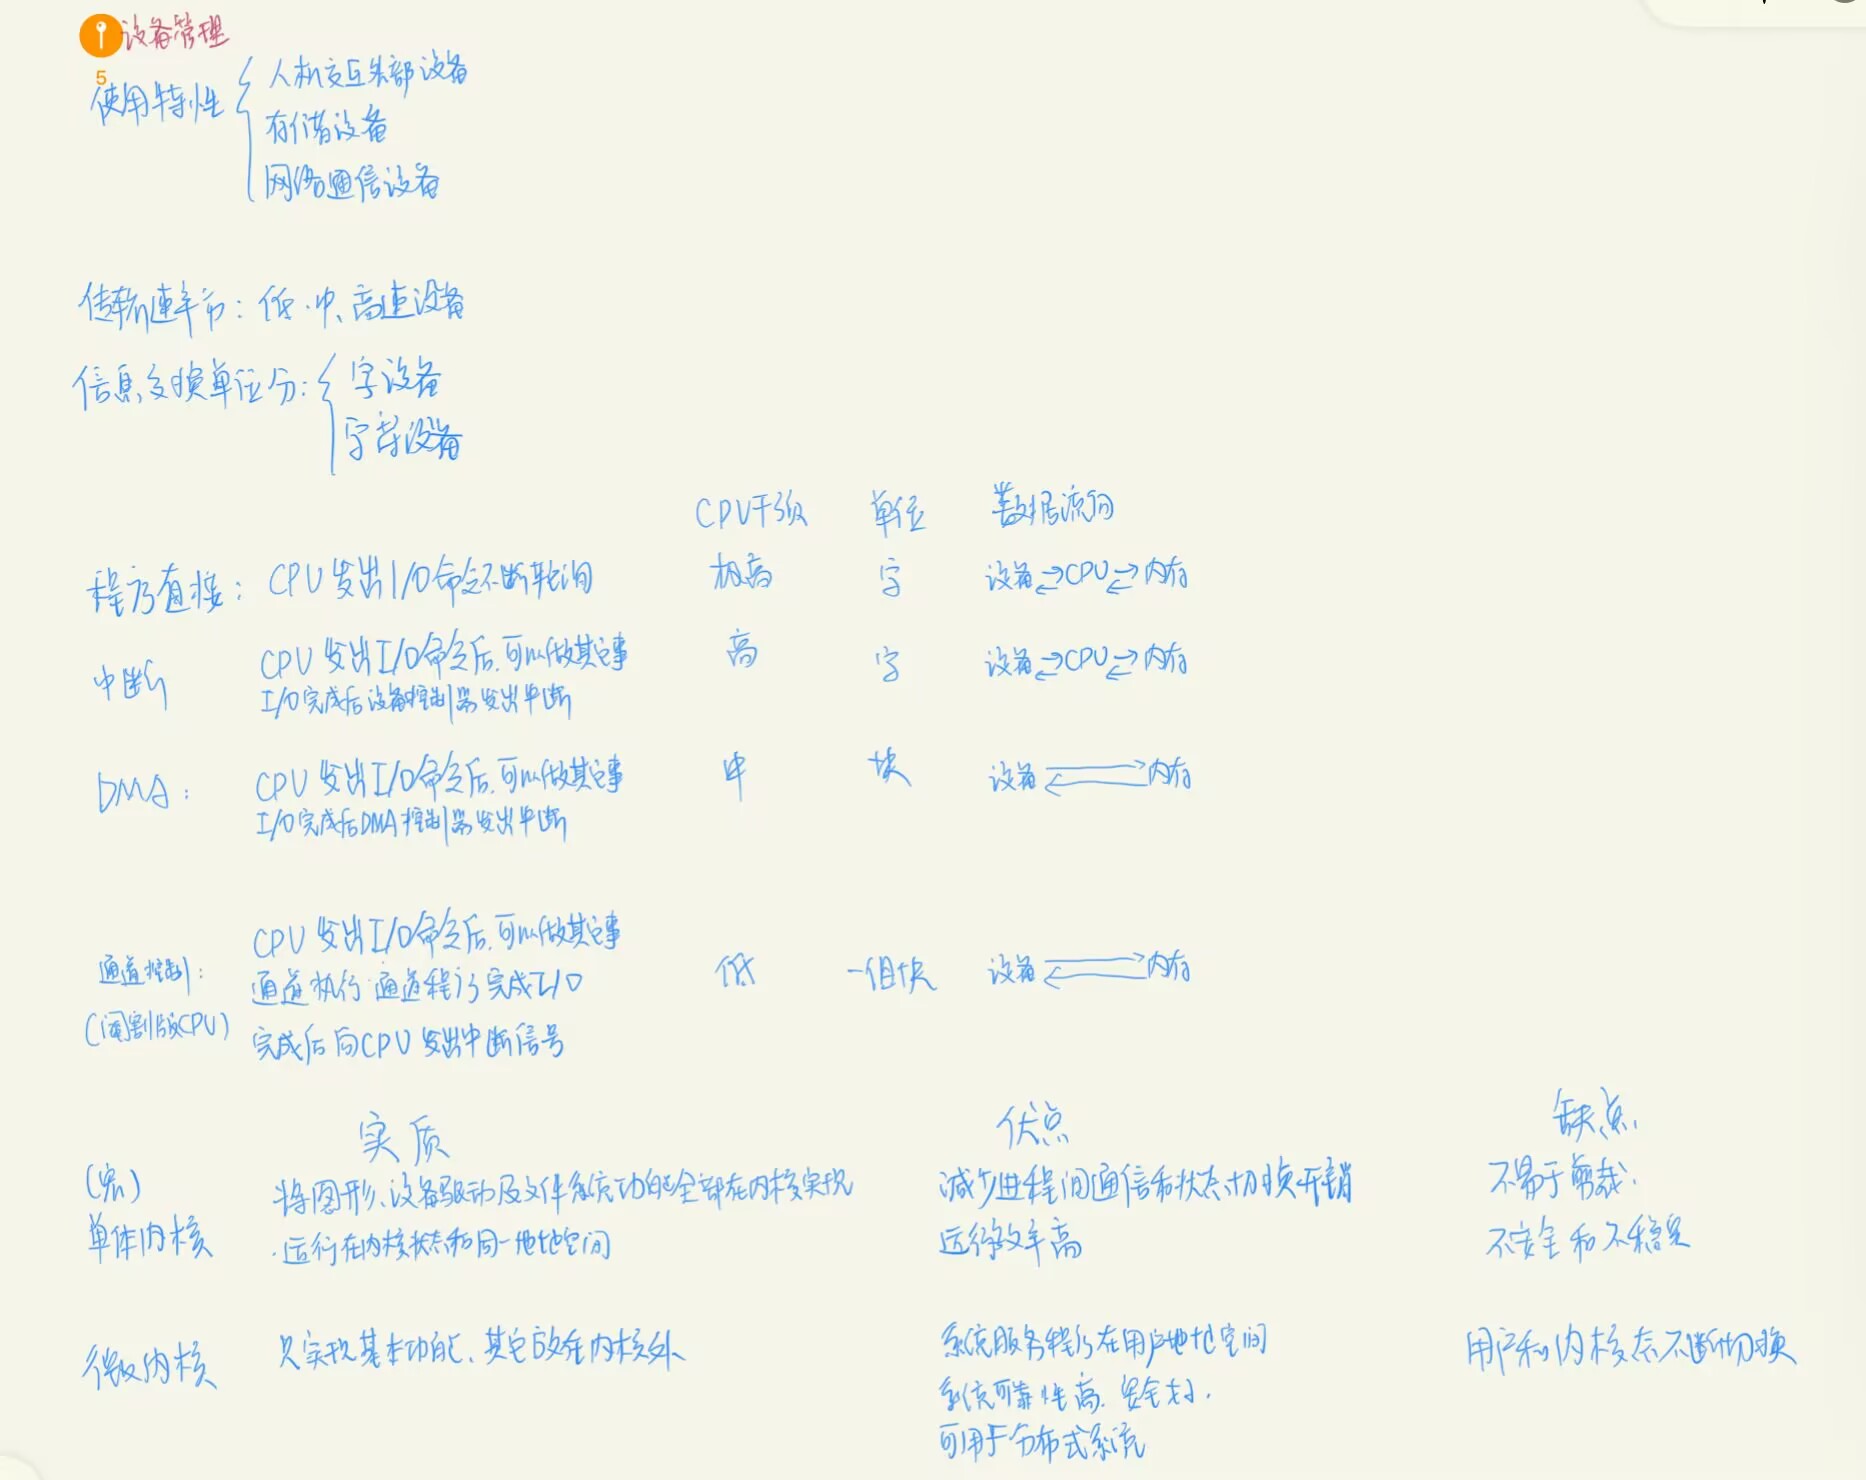 设备管理
5
使用特性
人机交互外部设备
存储设备
网络通信设备
传输速率分：低、中、高速设备
信息交换单位分：
字设备
字符设备
CPU干预 单位 数据流向
程序直接： CPU发出I/O命令不断轮询 极高 字 设备⇄CPU⇄内存
中断 CPU发出I/O命令后，可以做其它事 高 字 设备⇄CPU⇄内存
I/O完成后设备控制器发出中断
DMA： CPU发出I/O命令后，可以做其它事 中 块 设备⇄内存
I/O完成后DMA控制器发出中断
CPU发出I/O命令后，可以做其它事
通道控制： 通道执行通道程序完成I/O 低 一组块 设备⇄内存
(阉割版CPU) 完成后向CPU发出中断信号
实质 优点 缺点
(宏) 将图形、设备驱动及文件系统功能全部在内核实现 减少进程间通信和状态切换开销 不易于剪裁.
单体内核 运行在内核状态和同一地址空间 运行效率高 不安全和不稳定
微内核 只实现基本功能、其它放在内核外 系统服务程序在用户地址空间 用户和内核态不断切换
系统可靠性高.安全好.
可用于分布式系统